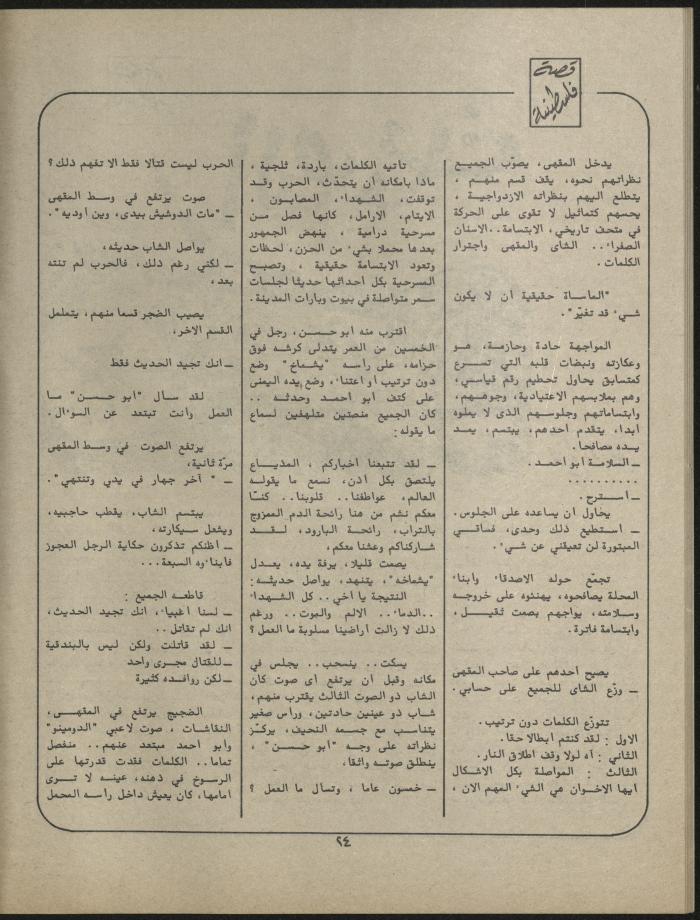 قصة
فلسطينية
يدخل المقهى، يصوّب الجميع
نظراتهم نحوه، يقف قسم منهم ،
يتطلع اليهم بنظراته الازدواجية ،
يحسهم كتماثيل لا تقوى على الحركة
في متحف تاريخي، الابتسامة..الاسنان
الصفراء.. الشاى والمقهى واجترار
الكلمات .
"المأساة حقيقية أن لا يكون
شيء قد تغيّر".
المواجهة حادة وحازمة، هو
وعكازته ونبضات قلبه التي تسرع
كمتسابق يحاول تحطيم رقم قياسي،
وهم بملابسهم الاعتيادية، وجوههم،
وابتساماتهم وجلوسهم الذى لا يملوه
أبدا، يتقدم أحدهم، يبتسم، يمد
يده مصافحا.
ــ السلامة أبو أحمد.
..........
ــ أسترح.
يحاول أن يساعده على الجلوس.
ــ استطيع ذلك وحدى، فساقي
المبتورة لن تعيقني عن شيء.
تجمّع حوله الاصدقاء وأبناء
المحلة يصافحوه، يهنئوه على خروجه
وسلامته، يواجهم بصمت ثقيل،
وابتسامة فاترة.
يصيح أحدهم على صاحب المقهى
ــ وزّع الشاى للجميع على حسابي.
تتوزع الكلمات دون ترتيب.
الاول : لقد كنتم أبطالا حقا.
الثاني : آه لولا وقف اطلاق النار.
الثالث : المواصلة بكل الاشكال
أيها الاخوان هي الشيء المهم الان ،
تأتيه الكلمات، باردة، ثلجية ،
ماذا بامكانه أن يتحدّث، الحرب وقد
توقفت، الشهداء، المصابون ،
الايتام، الارامل، كانها فصل من
مسرحية درامية ، ينهض الجمهور
بعدها محملا بشيء من الحزن، لحظات
وتعود الابتسامة حقيقية ، وتصبح
المسرحية بكل أحداثها حديثا لجلسات
سمر متواصلة في بيوت وبارات المدينة.
اقترب منه أبو حسن، رجل في
الخمسين من العمر يتدلى كرشه فوق
حزامه، على رأسه "يشماخ" وضع
دون ترتيب أو اعتناء، وضع يده اليمنى
على كتف أبو أحمد وحدثه ..
كان الجميع منصتين متلهفين لسماع
ما يقوله:
ــ لقد تتبعنا أخباركم ، المذياع
يلتصق بكل أذن، نسمع ما يقوله
العالم، عواطفنا.. قلوبنا.. كنّا
معكم نشم من هنا رائحة الدم الممزوج
بالتراب، رائحة البارود، لقد
شاركناكم وعشنا معكم،
يصمت قليلا، يرفة يده، يعدل
"يشماخه"، يتنهد، يواصل حديثه:
النتيجة يا أخي.. كل الشهداء
..الدماء.. الالم والموت.. ورغم
ذلك لا زالت أراضينا مسلوبة ما العمل ؟
يسكت.. ينسحب.. يجلس في
مكانه وقبل أن يرتفع أى صوت كان
الشاب ذو الصوت الثالث يقترب منهم،
شاب ذو عينين حادتين، ورأس صغير
يتناسب مع جسمه النحيف، يركّز
نظراته على وجه "أبو حسن" ،
ينطلق صوته واثقا،
ــ خمسون عاما ، وتسأل ما العمل ؟
الحرب ليست قتالا فقط الا تفهم ذلك؟
صوت يرتفع في وسط المقهى
ــ "مات الدوشيش بيدى، وين أوديه".
يواصل الشاب حديثه،
ــ لكني رغم ذلك، فالحرب لم تنته
بعد،
يصيب الضجر قسما منهم، يتململ
القسم الاخر،
ــ انك تجيد الحديث فقط
لقد سأل "ابو حسن" ما
العمل وأنت تبتعد عن السوءال.
يرتفع الصوت في وسط المقهى
مرّة ثانية،
ــ " آخر جهار في يدي وتنتهي".
يبتسم الشاب، يقطب حاجبيه،
ويشعل سيكارته،
ــ أظنكم تذكرون حكاية الرجل العجوز
فأبناءوه السبعة...
قاطعه الجميع :
ــ لسنا أغبياء، انك تجيد الحديث،
انك لم تقاتل..
ــ لقد قاتلت ولكن ليس بالبندقية
ــ للقتال مجرى واحد
ــ لكن روافده كثيرة
الضجيج يرتفع في المقهى،
النقاشات ، صوت لاعبي "الدومينو"
وأبو أحمد مبتعد عنهم.. منفصل
تماما.. الكلمات فقدت قدرتها على
الرسوخ في ذهنه، عينه لا ترى
أمامها، كان يعيش داخل رأسه المحمل
٢٤